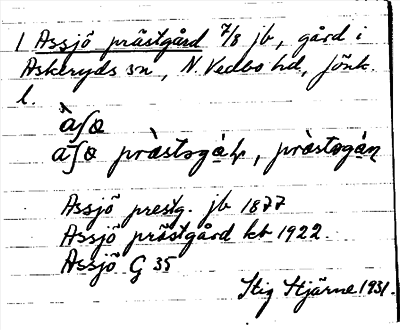 1 Assjö prästgård 7/8 jb, gård i
Askeryds sn, N. Vedbo hd, Jönk.
l.
àʃɷ
aʃɷ prà̀stɷgá̱ɽ, prà̀stɷgá̱ṇ
Assjö prestg. jb 1877
Assjö prästgård kb 1922.
Assjö G 35
Stig Stjärne 1931.